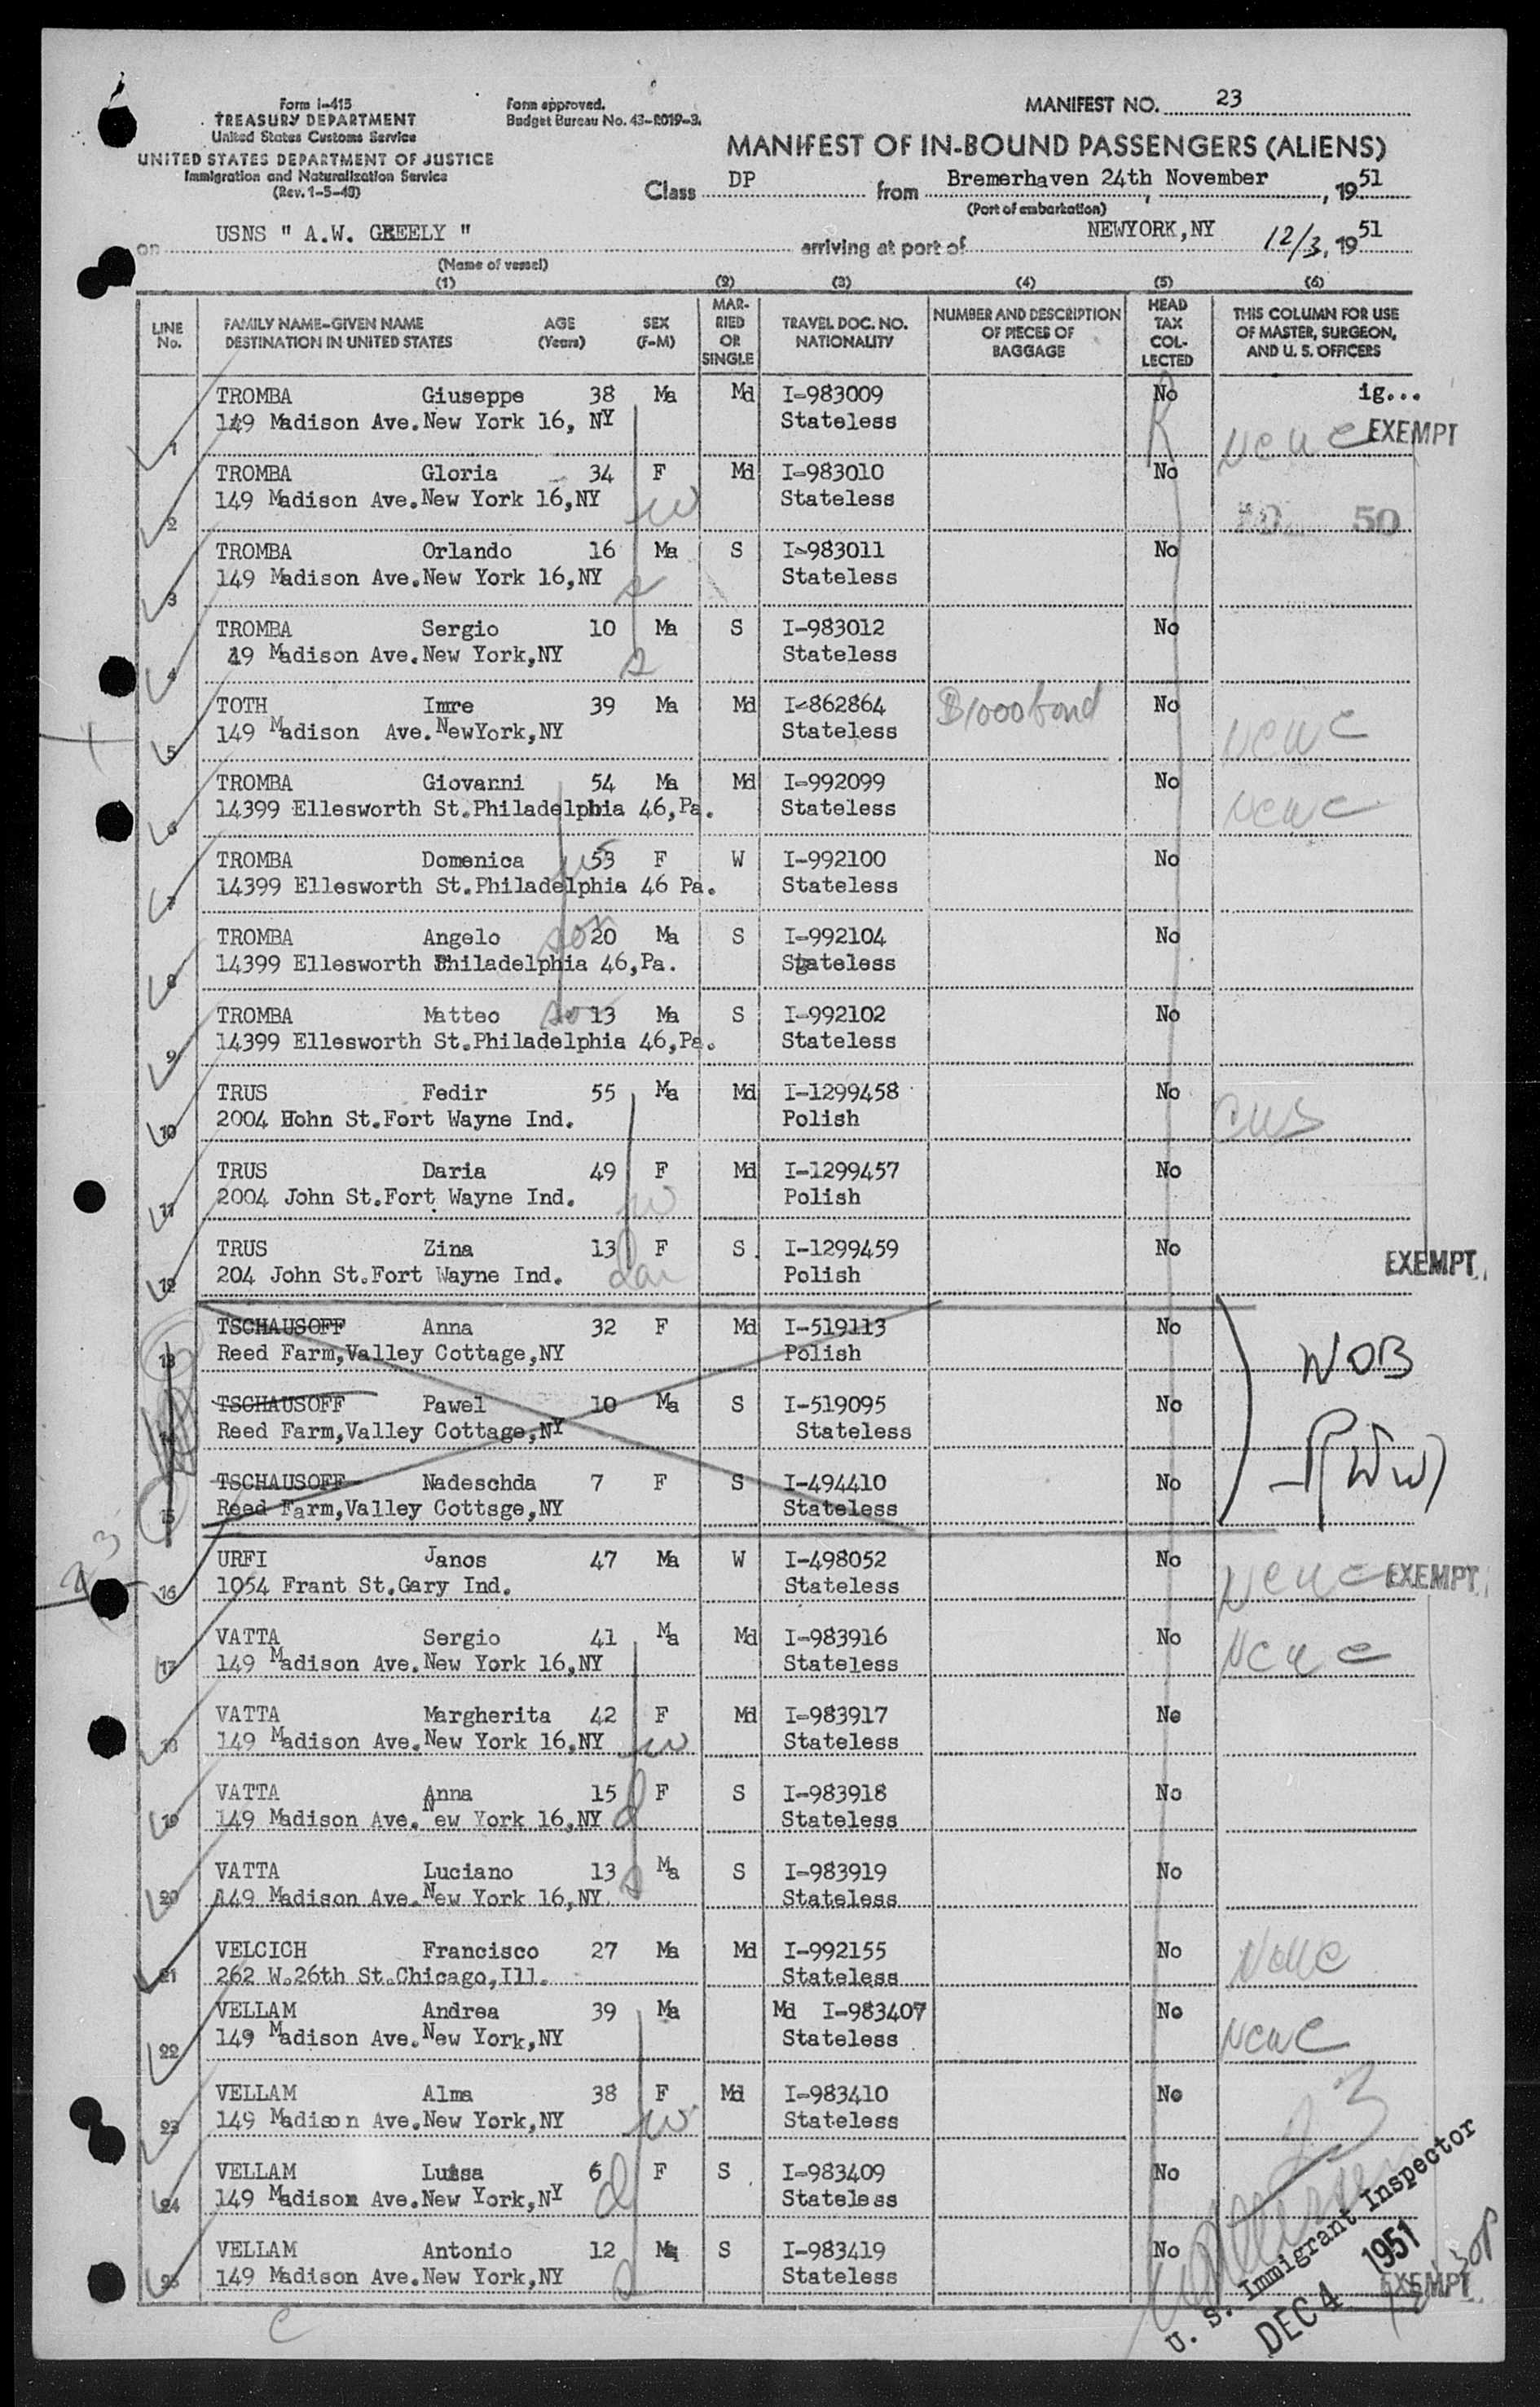 Form I-415
TREASURY DEPARTMENT
United States Customs Service
UNITED STATES DEPARTMENT OF JUSTICE
Immigration and Naturalization Service
(Rev. 1-5-49)
Form approved.
Budget Bureau No. 43-R019-3.
MANIFEST NO. 23
MANIFEST OF IN-BOUND PASSENGERS (ALIENS)
Class DP from Bremerhaven 24th November, 1951
(Port of embarkation)
on USNS " A.W. GREELY " arriving at port of NEWYORK,NY 12/3, 1951
(Name of vessel)
(1) (2) (3) (4) (5) (6)
LINE No. FAMILY NAME-GIVEN NAME DESTINATION IN UNITED STATES AGE (Years) SEX (F-M) MARRIED OR SINGLE TRAVEL DOC. NO. NATIONALITY NUMBER AND DESCRIPTION OF PIECES OF BAGGAGE HEAD TAX COLLECTED THIS COLUMN FOR USE OF MASTER, SURGEON, AND U. S. OFFICERS
TROMBA Giuseppe 38 Ma Md I-983009 No ig...
1 149 Madison Ave.New York 16, NY Stateless EXEMPT
TROMBA Gloria 34 F Md I-983010 No
2 149 Madison Ave.New York 16,NY w Stateless 50
TROMBA Orlando 16 Ma S I-983011 No
3 149 Madison Ave.New York 16,NY s Stateless
TROMBA Sergio 10 Ma S I-983012 No
4 49 Madison Ave.New York,NY s Stateless
TOTH Imre 39 Ma Md I-862864 $1000 bond No
5 149 Madison Ave.NewYork,NY Stateless
TROMBA Giovanni 54 Ma Md I-992099 No
6 14399 Ellesworth St.Philadelphia 46,Pa. Stateless
TROMBA Domenica w 53 F W I-992100 No
7 14399 Ellesworth St.Philadelphia 46 Pa. Stateless
TROMBA Angelo son 20 Ma S I-992104 No
8 14399 Ellesworth Philadelphia 46,Pa. Stateless
TROMBA Matteo 13 Ma S I-992102 No
9 14399 Ellesworth St.Philadelphia 46,Pa. Stateless
TRUS Fedir 55 Ma Md I-1299458 No
10 2004 Hohn St.Fort Wayne Ind. Polish
TRUS Daria 49 F Md I-1299457 No
11 2004 John St.Fort Wayne Ind. w Polish
TRUS Zina 13 F S. I-1299459 No
12 204 John St.Fort Wayne Ind. dau Polish EXEMPT
TSCHAUSOFF Anna 32 F Md I-519113 No
13 Reed Farm,Valley Cottage,NY Polish WOB
TSCHAUSOFF Pawel 10 Ma S I-519095 No
14 Reed Farm,Valley Cottage,NY Stateless
TSCHAUSOFF Nadeschda 7 F S I-494410 No
15 Reed Farm,Valley Cottsge,NY Stateless
URFI Janos 47 Ma W I-498052 No
16 1054 Frant St.Gary Ind. Stateless EXEMPT
VATTA Sergio 41 Ma Md I-983916 No
17 149 Madison Ave.New York 16,NY Stateless
VATTA Margherita 42 F Md I-983917 No
18 149 Madison Ave.New York 16,NY w Stateless
VATTA Anna 15 F S I-983918 No
19 149 Madison Ave.New York 16,NY d Stateless
VATTA Luciano 13 Ma S I-983919 No
20 149 Madison Ave.New York 16,NY s Stateless
VELCICH Francisco 27 Ma Md I-992155 No
21 262 W.26th St.Chicago,Ill. Stateless
VELLAM Andrea 39 Ma Md I-983407 No
22 149 Madison Ave.New York,NY Stateless
VELLAM Alma 38 F Md I-983410 No
23 149 Madison Ave.New York,NY w Stateless 23
VELLAM Luisa 6 F S I-983409 No
24 149 Madison Ave.New York,NY d Stateless
VELLAM Antonio 12 Ma S I-983419 No
25 149 Madison Ave.New York,NY s Stateless EXEMPT
U. S. Immigrant Inspector
DEC 4 1951